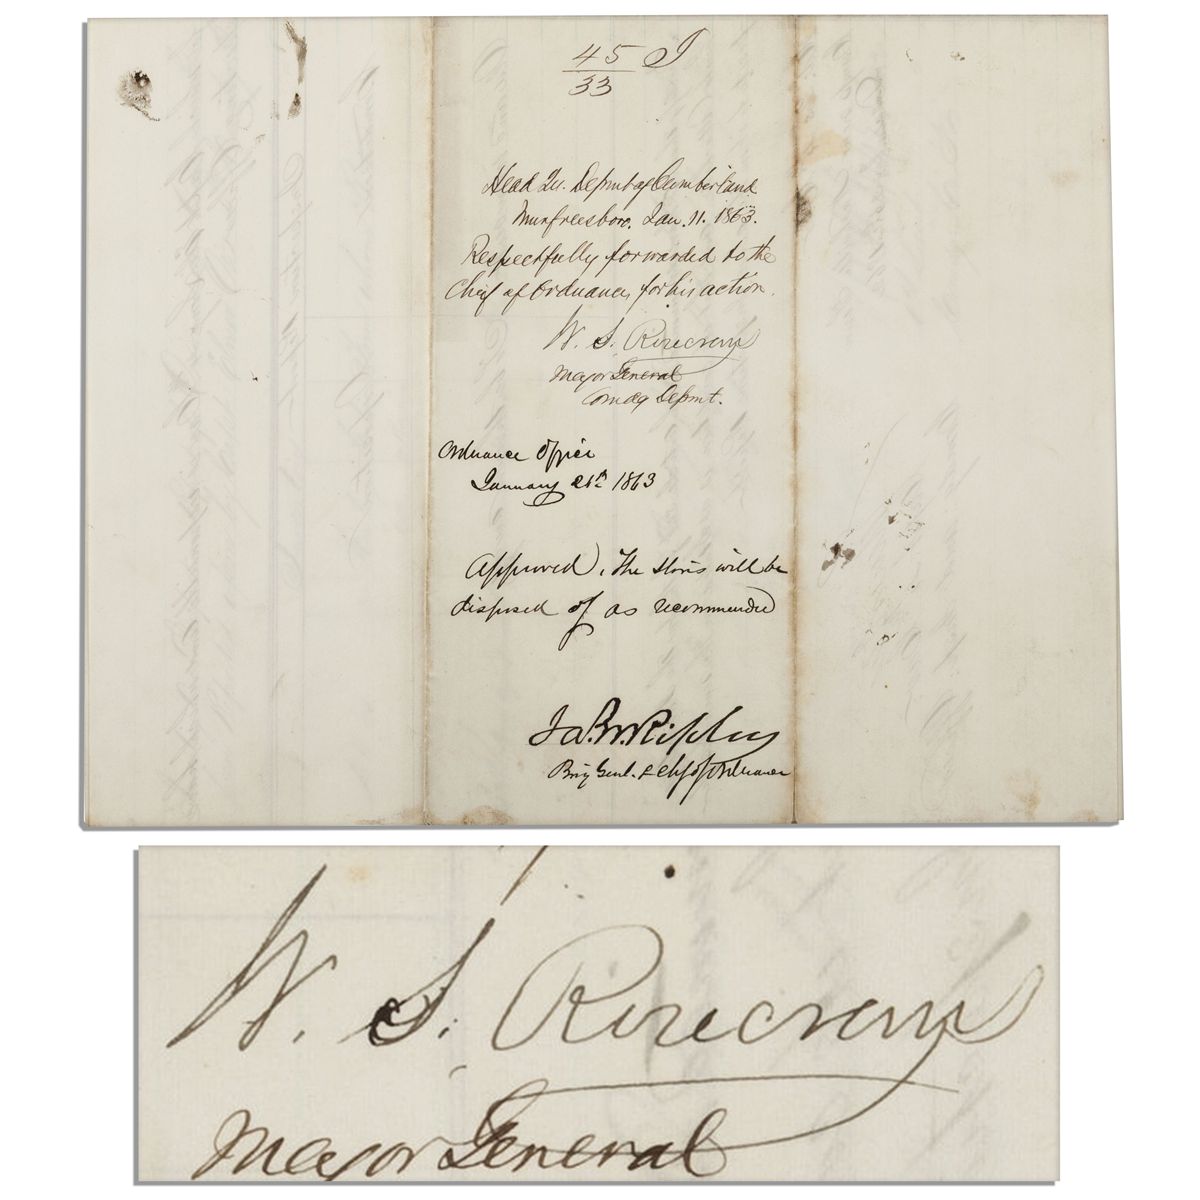 45 I
33
Head Qu. Depmt of Cumberland
Murfreesboro. Jan. 11. 1863.
Respectfully forwarded to the
Chief of Ordnance, for his action.
W. S. Rosecrans
Major General
Comdg Depmt.
Ordnance Office
January 21st 1863
Approved. The stores will be
disposed of as recommended
Ja. W. Ripley
Brig Genl. & Ch. of Ordnance
W. S. Rosecrans
Major General